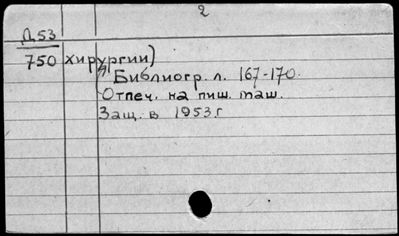 2
Д53
750 хирургии)
Библиогр. л. 167-170.
Отпеч. на пиш. маш.
Защ. в 1953 г